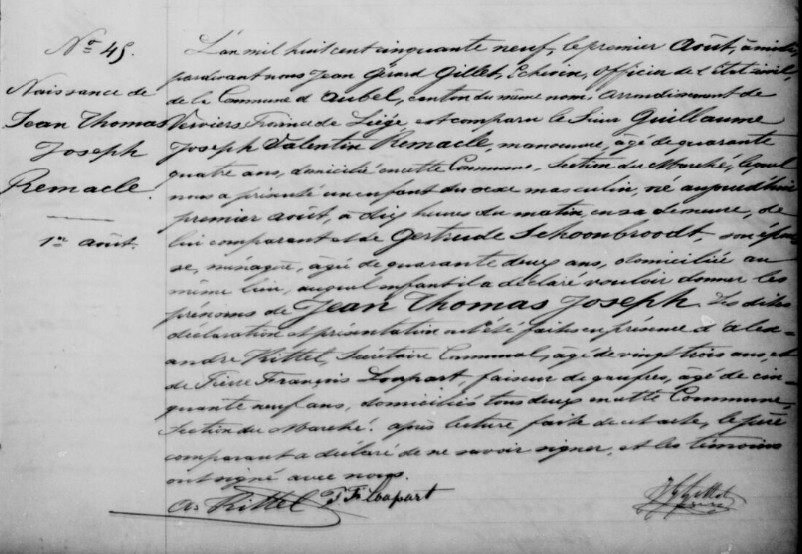 No 45.
Naissance de
Jean Thomas
Joseph
Remacle.
1er août.
L'an mil huit cent cinquante neuf, le premier Août, à midi,
pardevant nous Jean Gérard Gillet, Echevin, Officier de l'Etat civil,
de la Commune d'Aubel, canton du même nom, arrondissement de
Verviers, Province de Liége est comparu le Sieur Guillaume
Joseph Valentin Remacle, manoeuvre, âgé de quarante
quatre ans, domicilié en cette Commune, Section du Marché, lequel
nous a présenté un enfant du sexe masculin, né aujourd'hui
premier août, à dix heures du matin, en sa demeure, de
lui comparant et de Gertrude Schoonbroodt, son épou-
se, ménagère, âgée de quarante deux ans, domiciliée au
même lieu, auquel enfant il a déclaré vouloir donner les
prénoms de Jean Thomas Joseph. Les dites
déclaration et présentation ont été faites en présence d'Alex-
andre Kittel, Secrétaire Communal, âgé de vingt trois ans, et
de Pierre François Loupart, faiseur de gaufres, âgé de cin-
quante neuf ans, domiciliés tous deux en cette Commune,
Section du Marché. Après lecture faite de cet acte, le père
comparant a déclaré de ne savoir signer, et les témoins
ont signé avec nous.
Ax Kittel P. F. Loupart